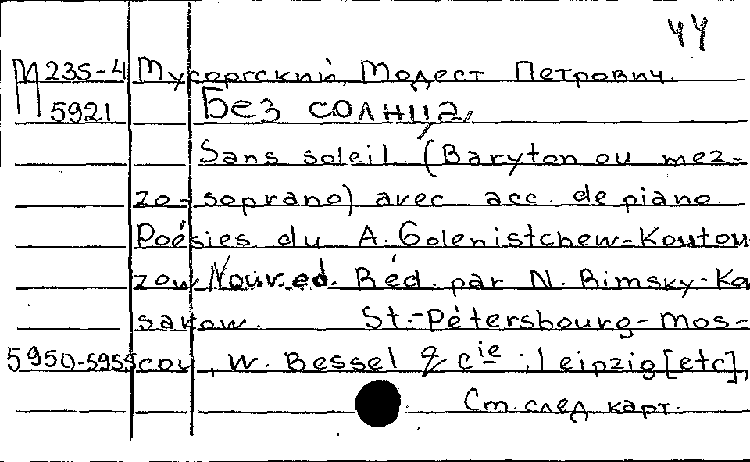 44
М 235-4 Мусоргский, Модест Петрович.
5921 Без солнца.
Sans soleil (Baryton ou mez-
zo-soprano) avec acc. de piano
Poésies du A. Golenistchew-Koutou
zow. Nouv. ed. Réd. par N. Rimsky-Ko
sakow. St.-Pétersbourg-Mos-
5950-5955 cou, W. Bessel & cie ; Leipzig [etc],
См. след. карт.